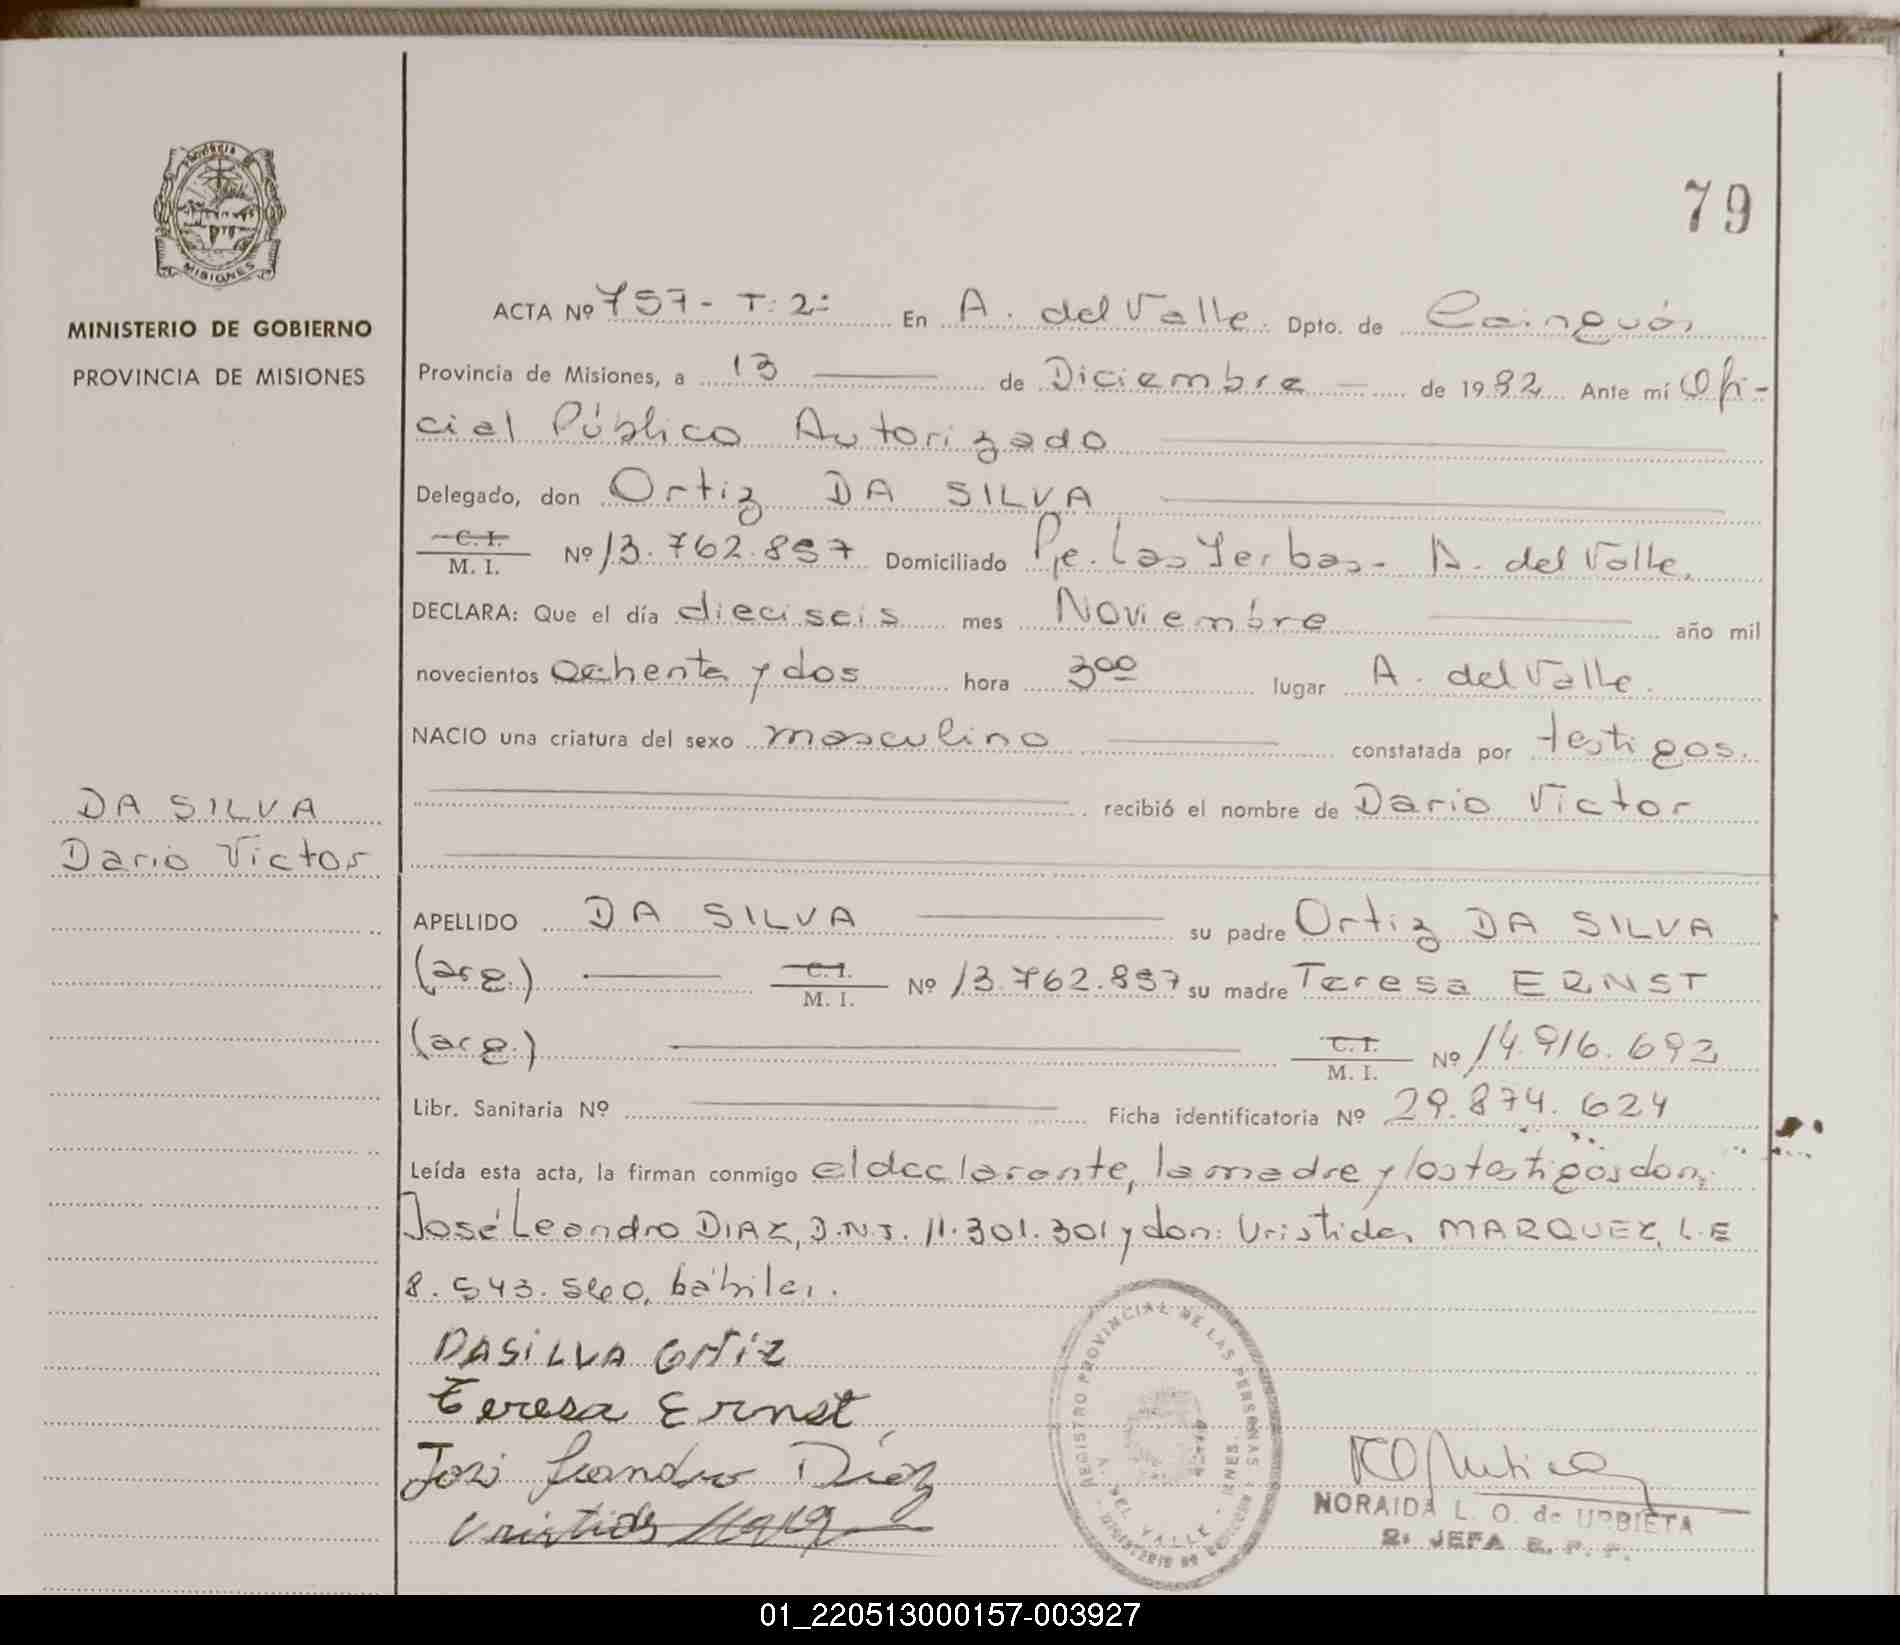 79
Provincia
MISIONES
MINISTERIO DE GOBIERNO
PROVINCIA DE MISIONES
ACTA Nº 757- T: 2º En A. del Valle. Dpto. de Cainguás
Provincia de Misiones, a 13 de Diciembre de 1982 Ante mí Ofi-
cial Público Autorizado
Delegado, don Ortiz DA SILVA
C. I.
M. I. Nº 13.762.857 Domiciliado Pje. Las Yerbas- A. del Valle.
DECLARA: Que el día dieciseis mes Noviembre año mil
novecientos ochenta y dos hora 3oo lugar A. del Valle.
NACIO una criatura del sexo masculino constatada por testigos.
recibió el nombre de Dario Victor
DA SILVA
Dario Victor
APELLIDO DA SILVA su padre Ortiz DA SILVA
(arg.) C. I.
M. I. Nº 13.762.857 su madre Teresa ERNST
(arg.) C. I.
M. I. Nº 14.916.692
Libr. Sanitaria Nº Ficha identificatoria Nº 29.874.624
Leída esta acta, la firman conmigo el declarante, la madre y los testigos don:
José Leandro DIAZ, D.N.I. 11.301.301 y don: Uristides MARQUEZ, L.E
8.543.560, hábiles.
DASiLVA ORTiZ
Teresa Ernst
José Leandro Diaz
Uristides
REGISTRO PROVINCIAL DE LAS PERSONAS
A. DEL VALLE
NORAIDA L. O. de URBIETA
2: JEFA R. P. P.
01_220513000157-003927